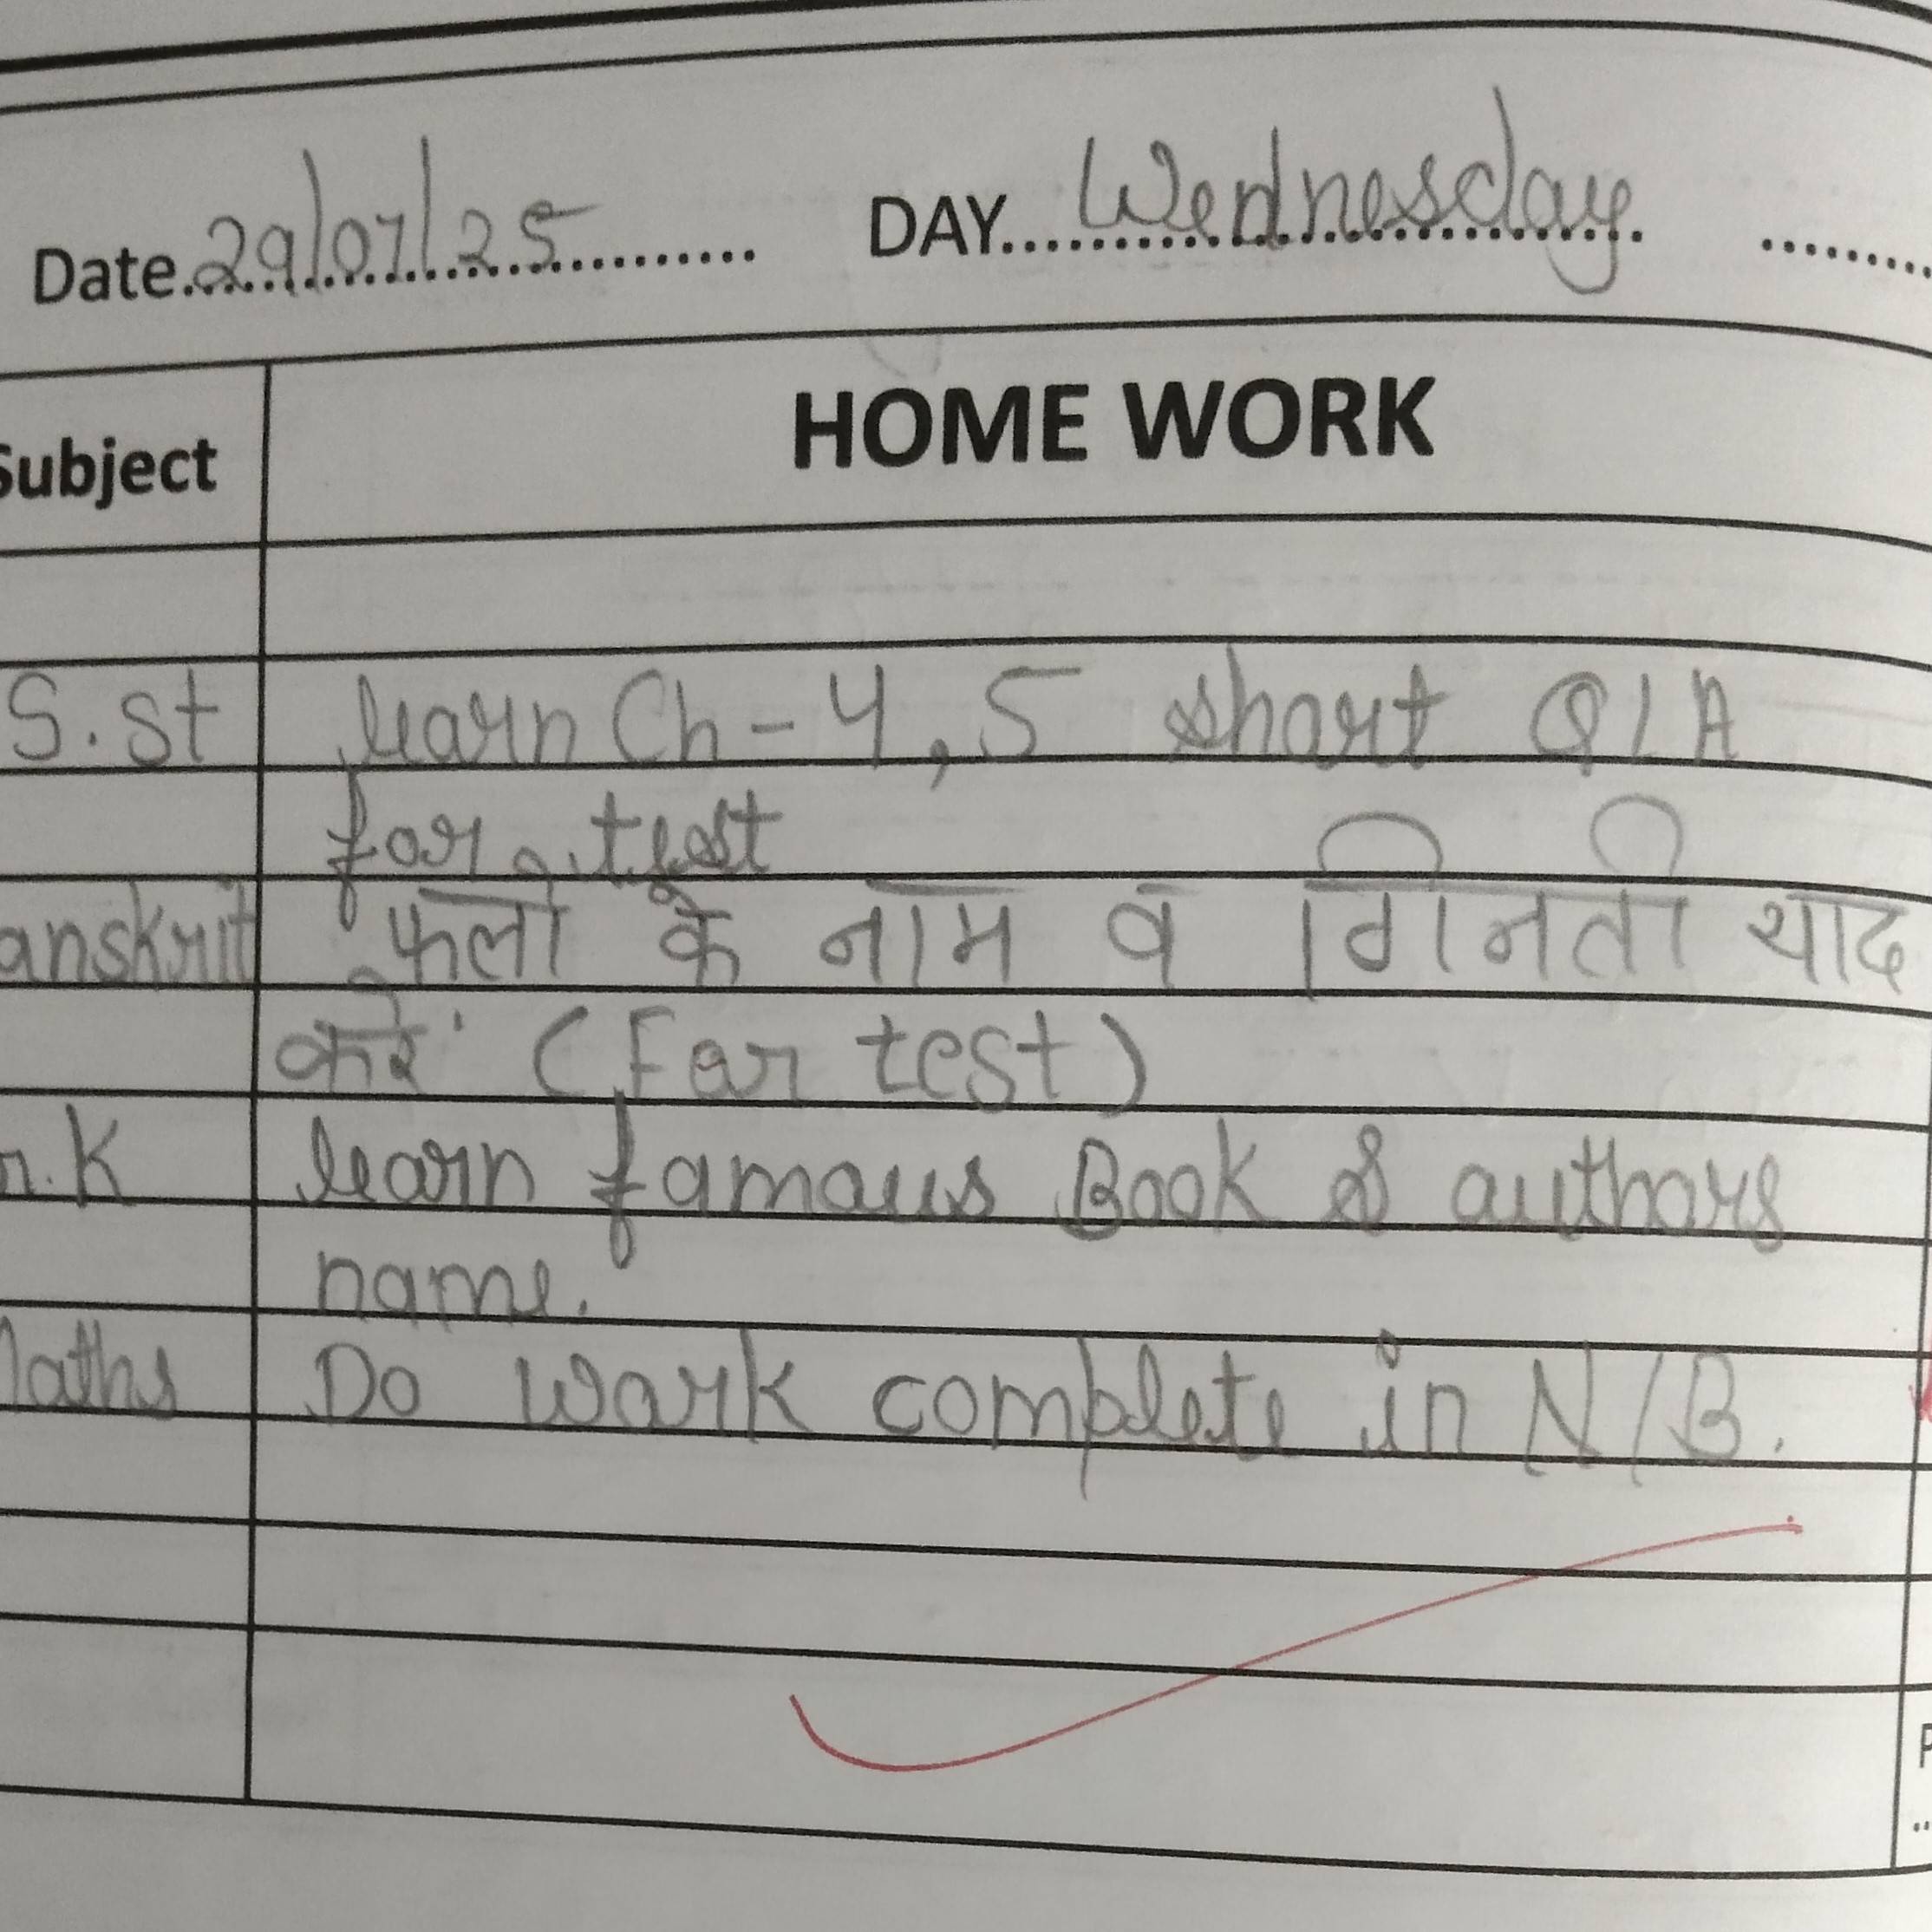 Date 29/07/25 DAY Wednesday
Subject HOME WORK
S.st learn Ch-4,5 short Q/A
for test
anskrit फलो के नाम व गिनती याद
करें (For test)
n.K learn famous Book & authors
name.
Maths Do work complete in N/B.